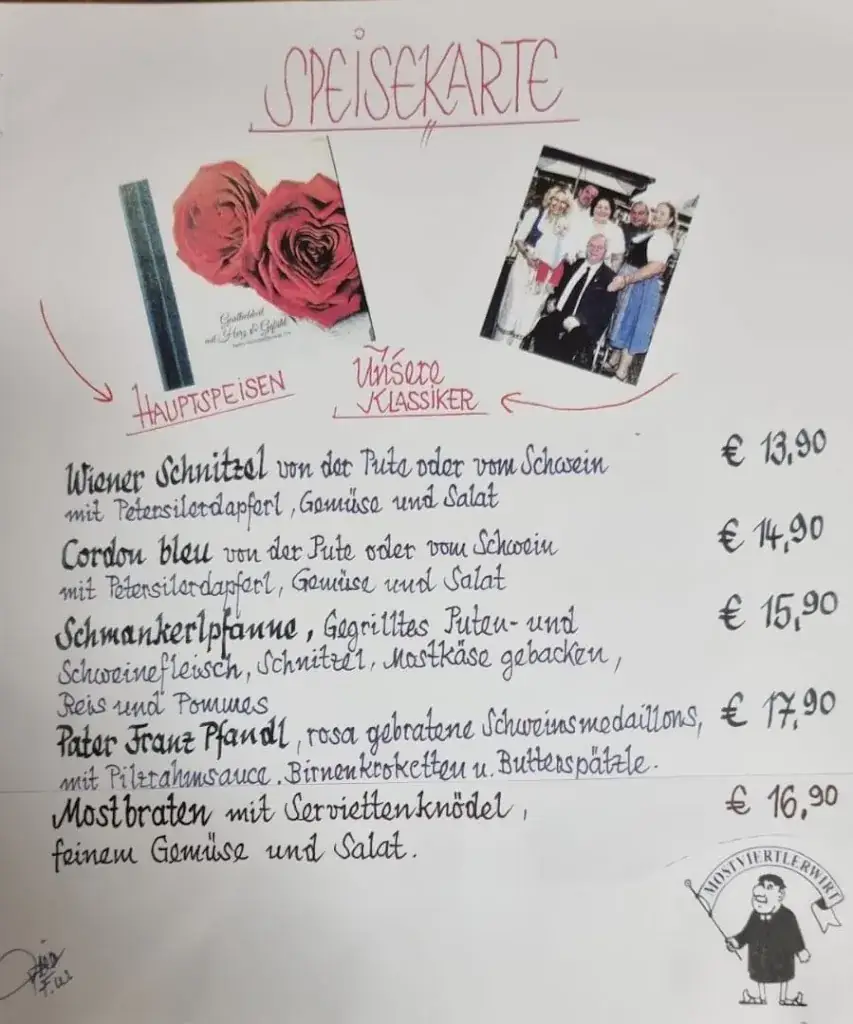 SPEISEKARTE
Gastlichkeit
mit Herz & Gefühl
HAUPTSPEISEN
Unsere
KLASSIKER
Wiener Schnitzel von der Pute oder vom Schwein € 13,90
mit Petersilerdapferl, Gemüse und Salat
Cordon bleu von der Pute oder vom Schwein € 14,90
mit Petersilerdapferl, Gemüse und Salat
Schmankerlpfanne, Gegrilltes Puten- und € 15,90
Schweinefleisch, Schnitzel, Mostkäse gebacken,
Reis und Pommes
Pater Franz Pfandl, rosa gebratene Schweinsmedaillons, € 17,90
mit Pilzrahmsauce, Birnenkroketten u. Butterspätzle.
Mostbraten mit Serviettenknödel, € 16,90
feinem Gemüse und Salat.
MOSTVIERTLERWIRT